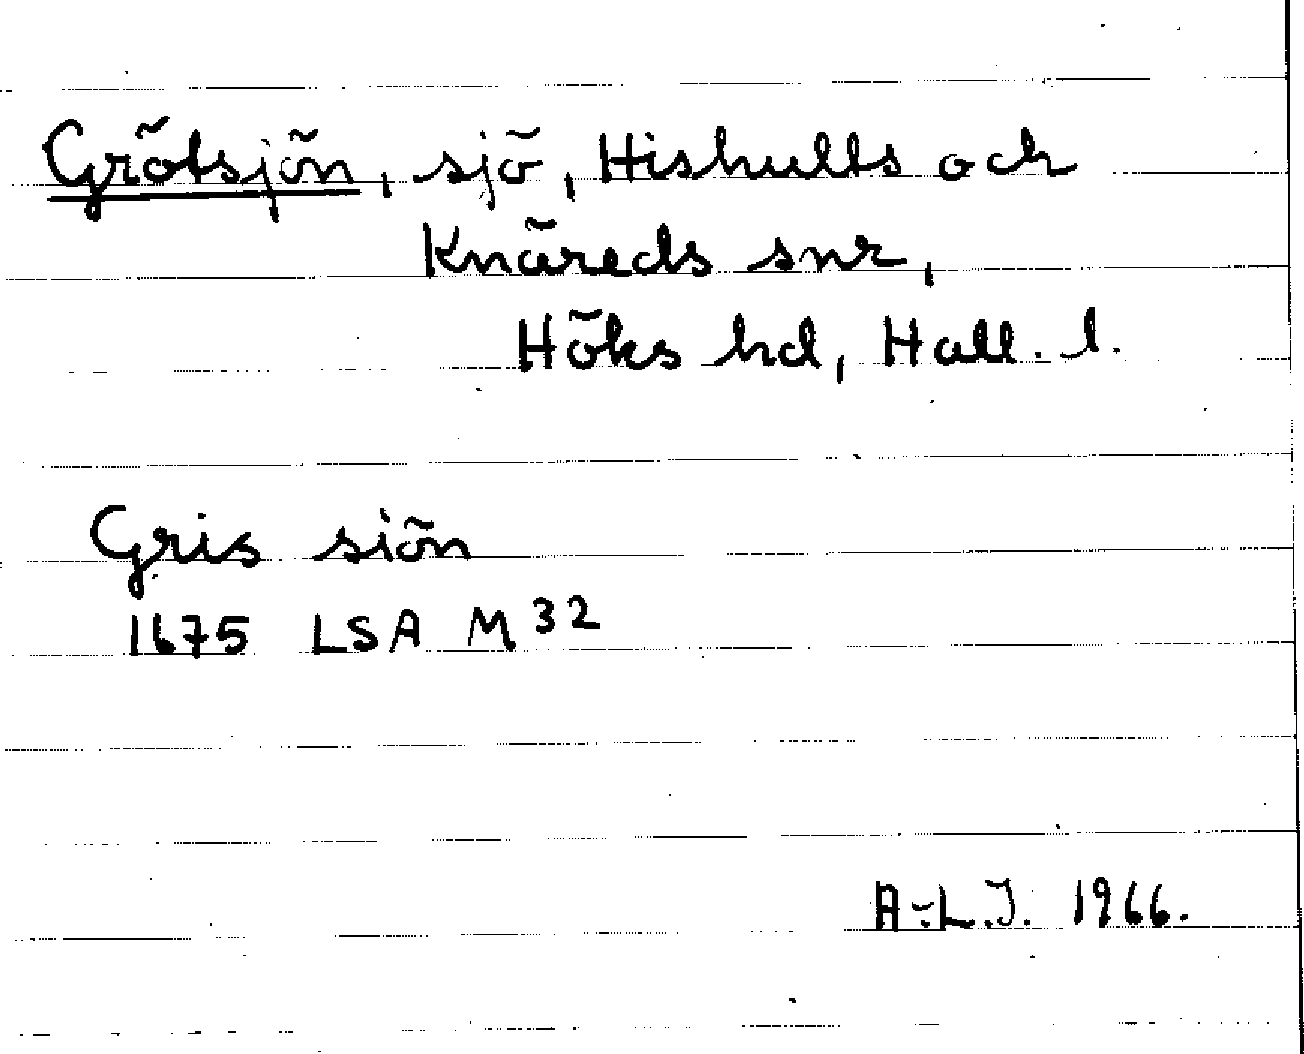 Grötsjön, sjö, Hishults och
Knäreds snr,
Höks hd, Hall. l.
Gris siön
1675 LSA M 32
A-L.J. 1966.